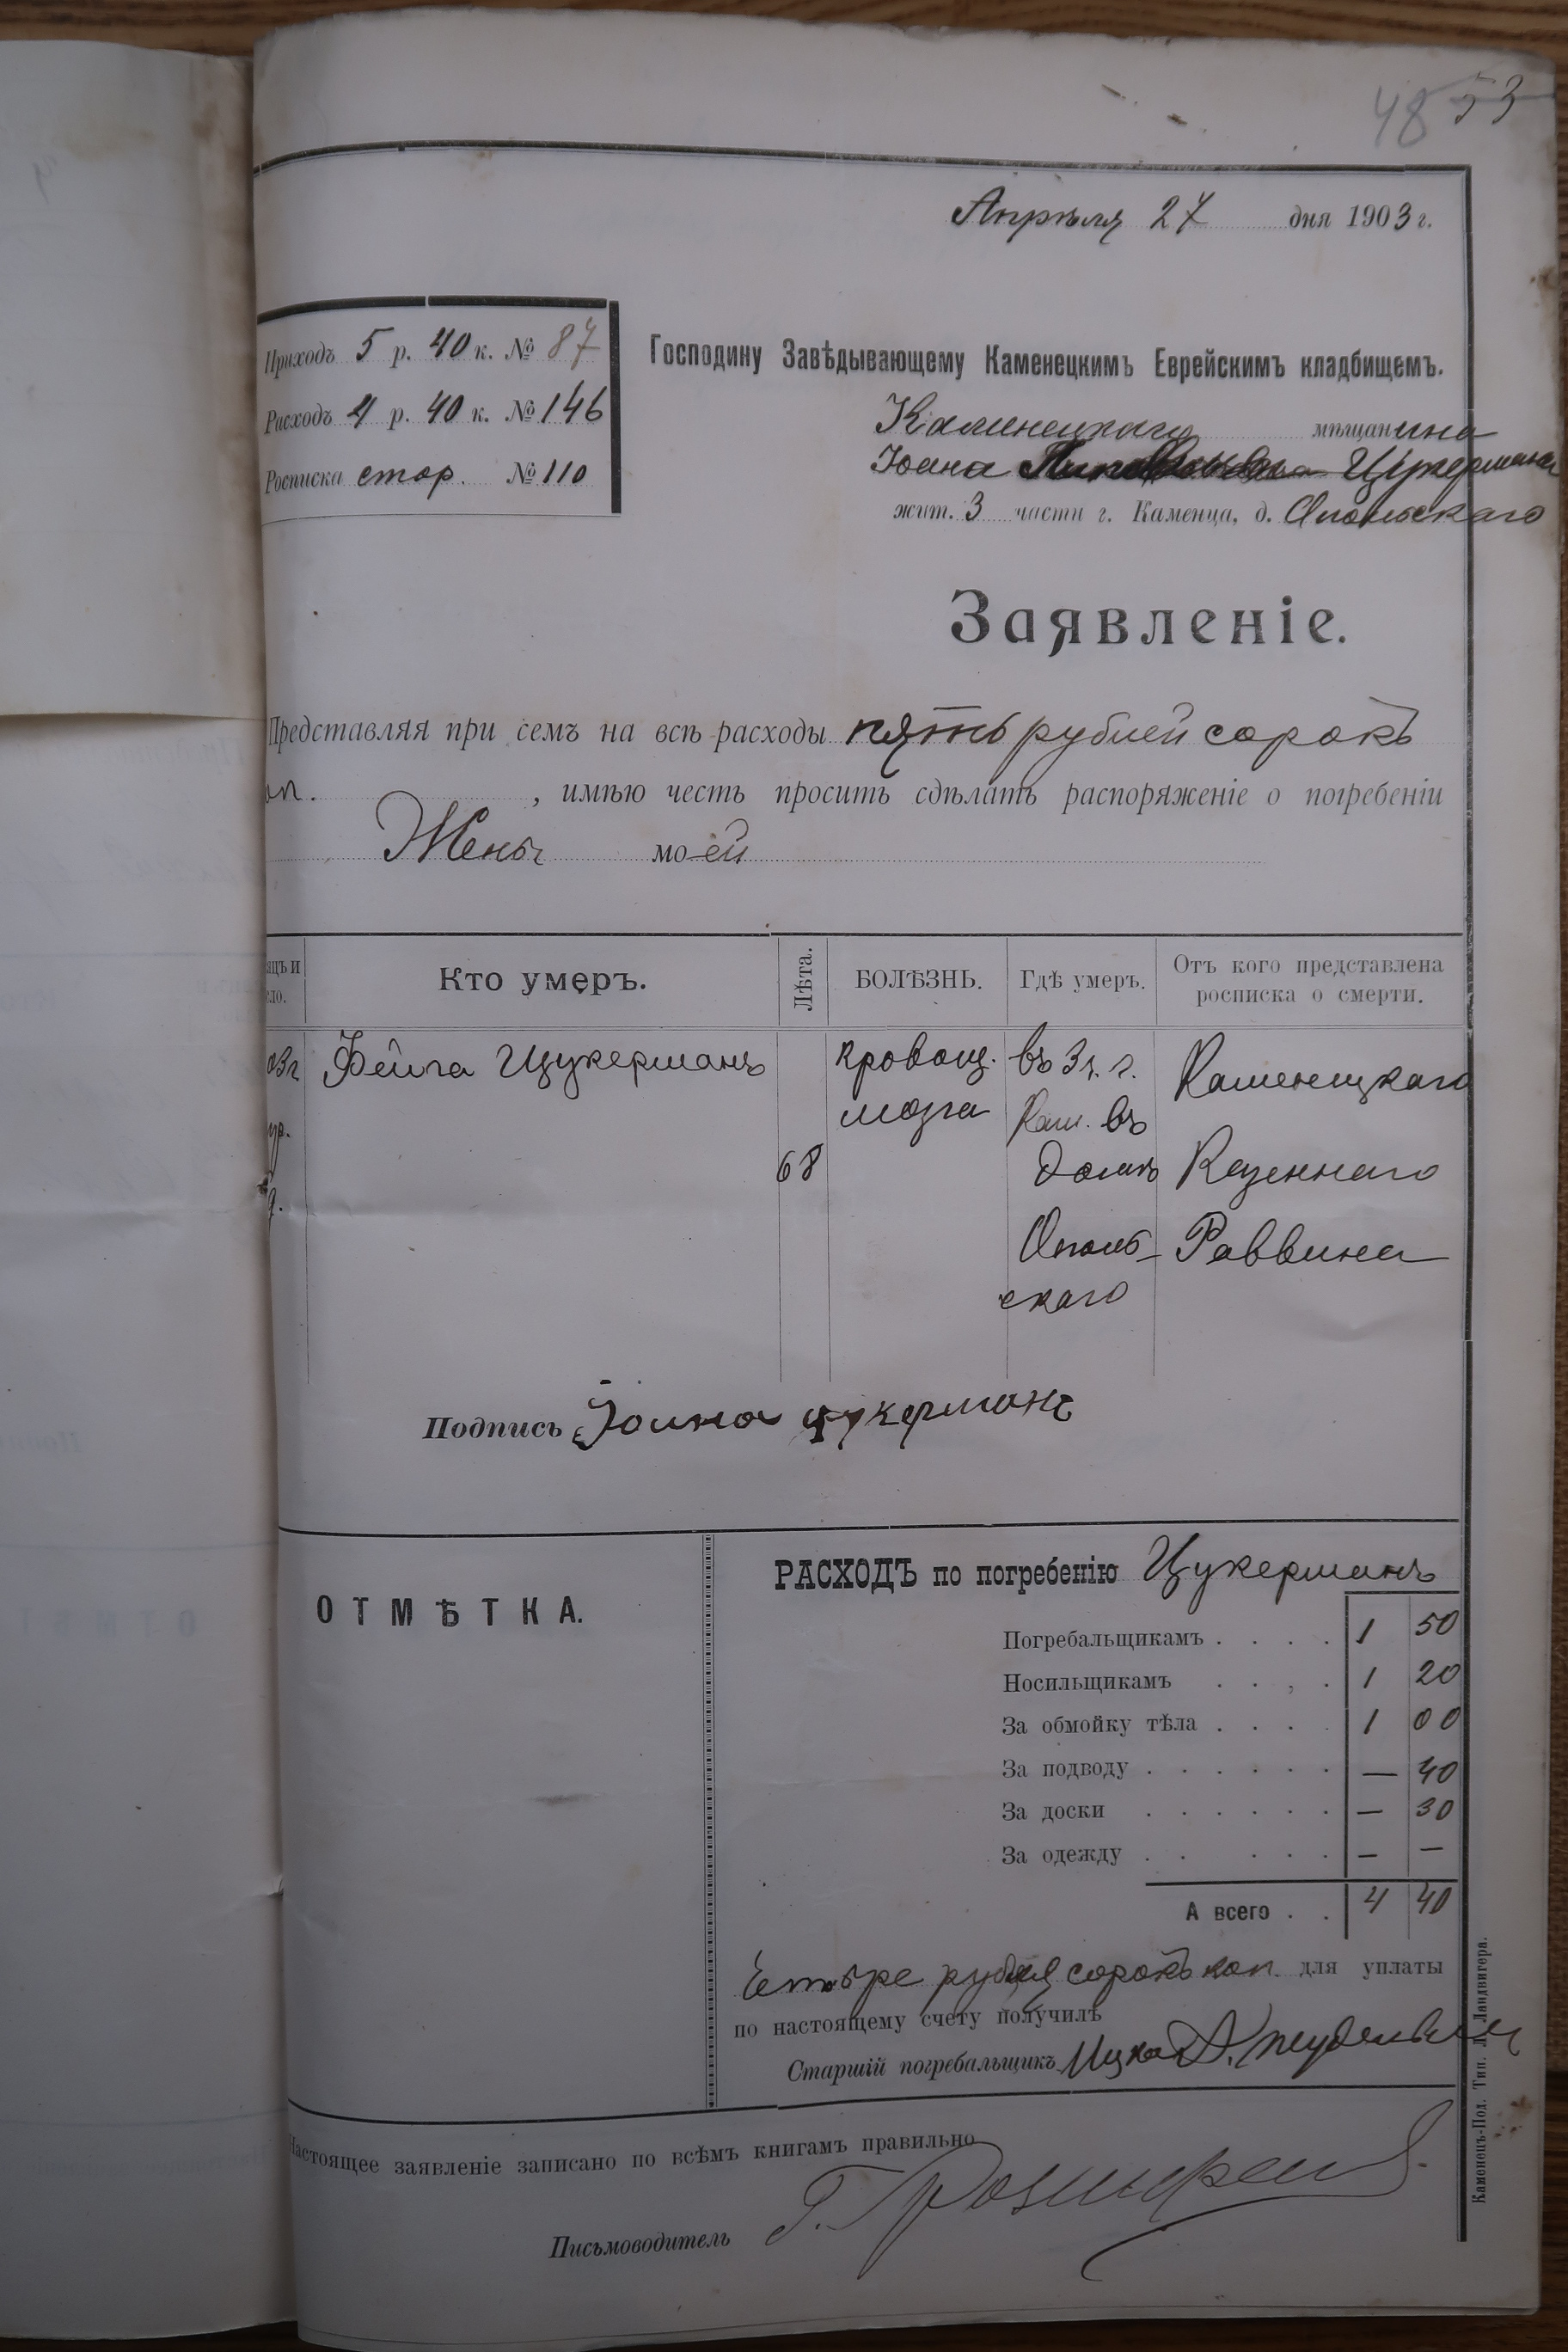 48 53
Апрѣля 27 дня 1903 г.
Приходъ 5 р. 40 к. № 87
Расходъ 4 р. 40 к. № 146
Росписка стор. № 110
Господину Завѣдывающему Каменецкимъ Еврейскимъ кладбищемъ.
Каменецкаго мѣщанина
Іоина Цукермана
жит. 3 части г. Каменца, д. Опольскаго
Заявленіе.
Представляя при семъ на всѣ расходы пять рублей сорокъ
оп. , имѣю честь просить сдѣлать распоряженіе о погребеніи
Жены моей
яцъ и
сло.
Кто умеръ.
Лѣта.
БОЛѢЗНЬ.
Гдѣ умеръ.
Отъ кого представлена
росписка о смерти.
03 г
пр.
Фейга Цукерманъ
68
кровоиз.
мозга
въ 3 ч. г.
Кам. въ
домѣ
Ополь-
скаго
Каменецкаго
Казеннаго
Раввина
Подпись Іоина цукерманъ
ОТМѢТКА.
РАСХОДЪ по погребенію Цукерманъ
Погребальщикамъ . . . . 1 50
Носильщикамъ . . , . 1 20
За обмойку тѣла . . . . 1 00
За подводу . . . . . . — 40
За доски . . . . . . — 30
За одежду . . . . . — —
А всего . . 4 40
Четыре рубля сорокъ коп. для уплаты
по настоящему счету получилъ
Старшій погребальщикъ Ицко
Настоящее заявленіе записано по всѣмъ книгамъ правильно
Письмоводитель Г.
Каменецъ-Под. Тип. Л. Ландвигера.